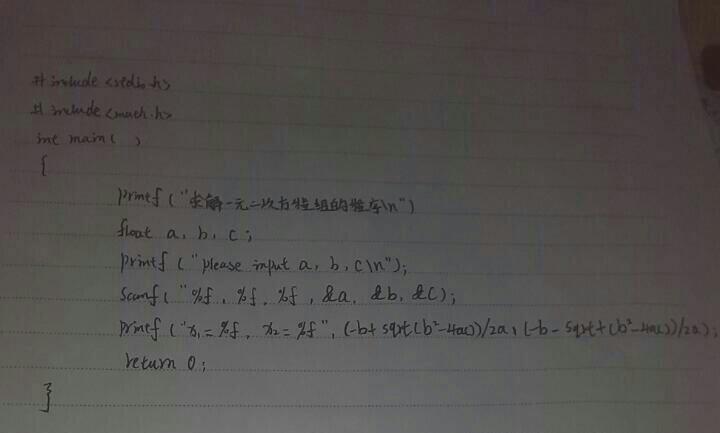 #include <stdio.h>
#include <math.h>
int main( )
{
printf ("求解一元二次方程组的程序\n")
float a, b, c;
printf ("please input a, b, c\n");
scanf ("%f, %f, %f, &a, &b, &c);
printf ("x₁=%f, x₂=%f", (-b+sqrt(b²-4ac))/2a, (-b-sqrt+(b²-4ac))/2a);
return 0;
}